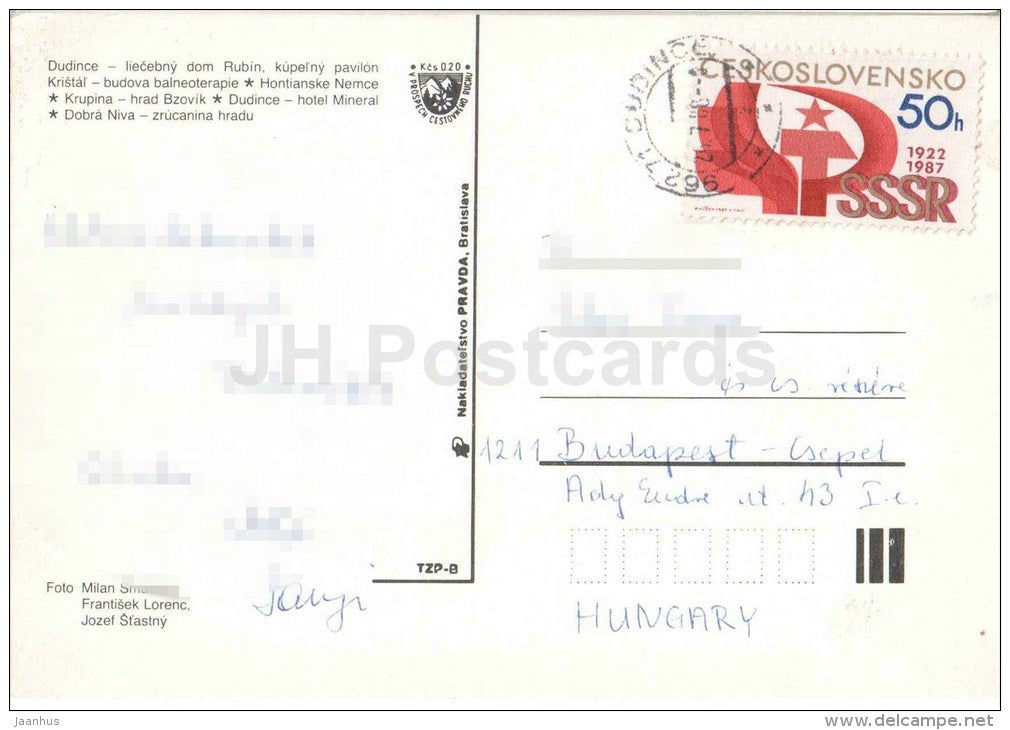 Dudince – liečebný dom Rubín, kúpeľný pavilón
Krištáľ – budova balneoterapie ★ Hontianske Nemce
★ Krupina – hrad Bzovík ★ Dudince – hotel Mineral
★ Dobrá Niva – zrúcanina hradu
• Kčs 0,20 •
V PROSPECH CESTOVNÉHO RUCHU
ČESKOSLOVENSKO
50h
1922
1987
SSSR
962 71 DUDINCE
Nakladateľstvo PRAVDA, Bratislava
JH Postcards
és cs. részére
1211 Budapest - Csepel
Ady Endre ut. 43 I.e.
HUNGARY
TZP-8
Foto Milan
František Lorenc,
Jozef Šťastný
Jaanhus
www.delcampe.net